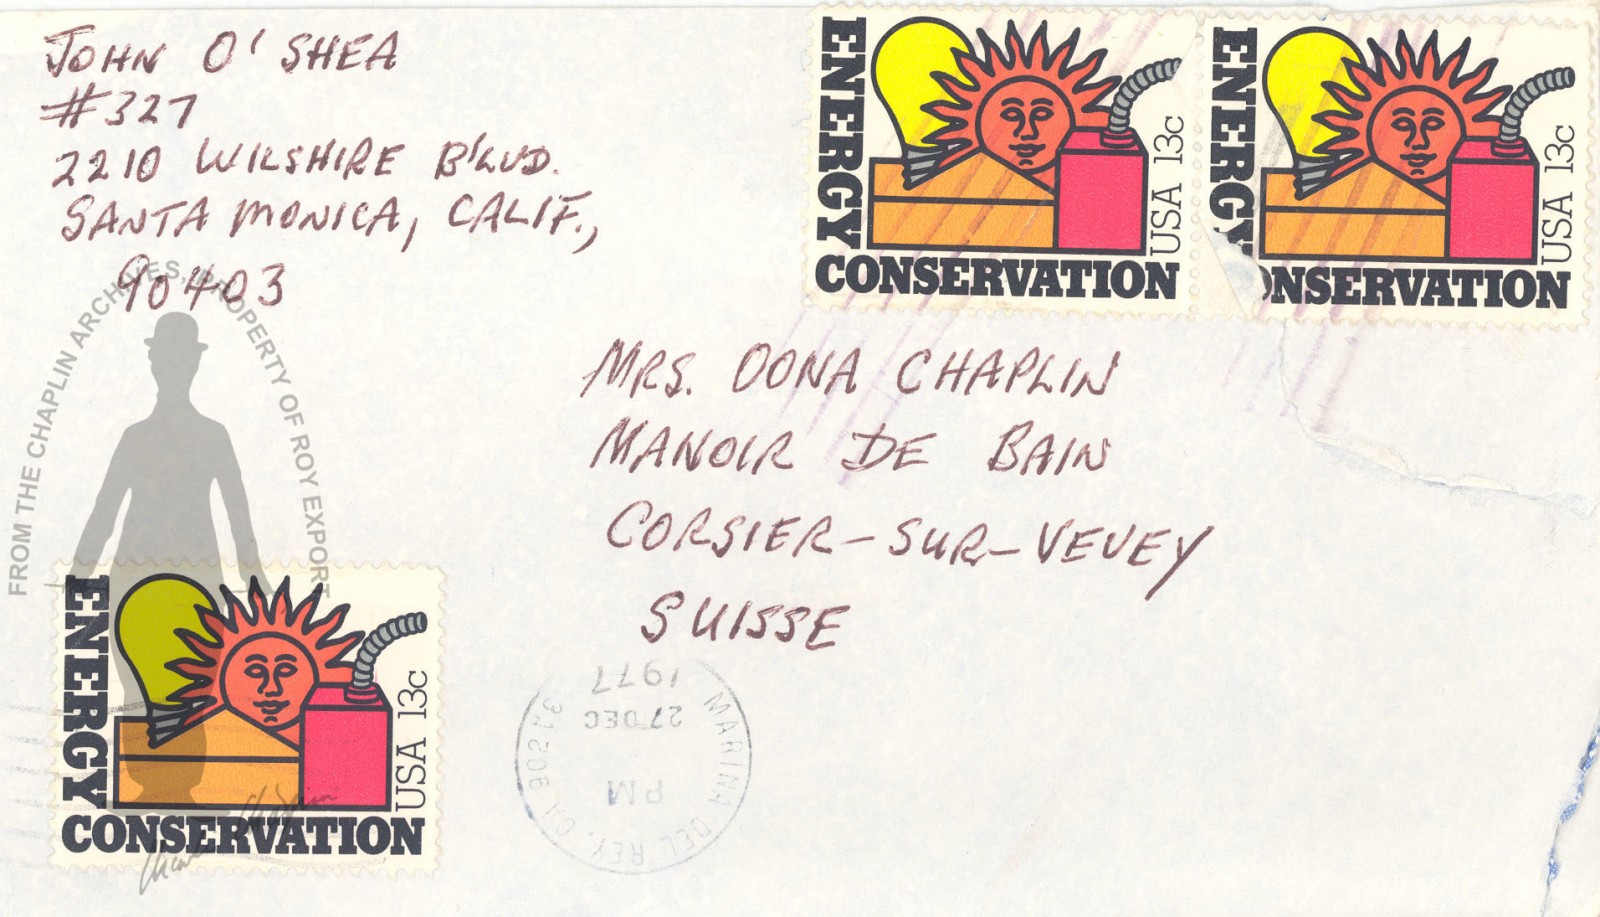 JOHN O'SHEA
#327
2210 WILSHIRE B'LVD.
SANTA MONICA, CALIF.,
90403
ENERGY
CONSERVATION
USA 13c
ENERGY
CONSERVATION
USA 13c
MRS. OONA CHAPLIN
MANOIR DE BAIN
CORSIER-SUR-VEVEY
SUISSE
FROM THE CHAPLIN ARCHIVES, PROPERTY OF ROY EXPORT
ENERGY
CONSERVATION
USA 13c
MARINA DEL REY, CA 90291
PM
27 DEC
1977